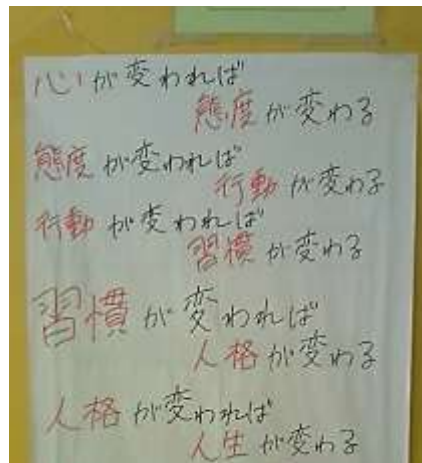 心が変われば
態度が変わる
態度が変われば
行動が変わる
行動が変われば
習慣が変わる
習慣が変われば
人格が変わる
人格が変われば
人生が変わる